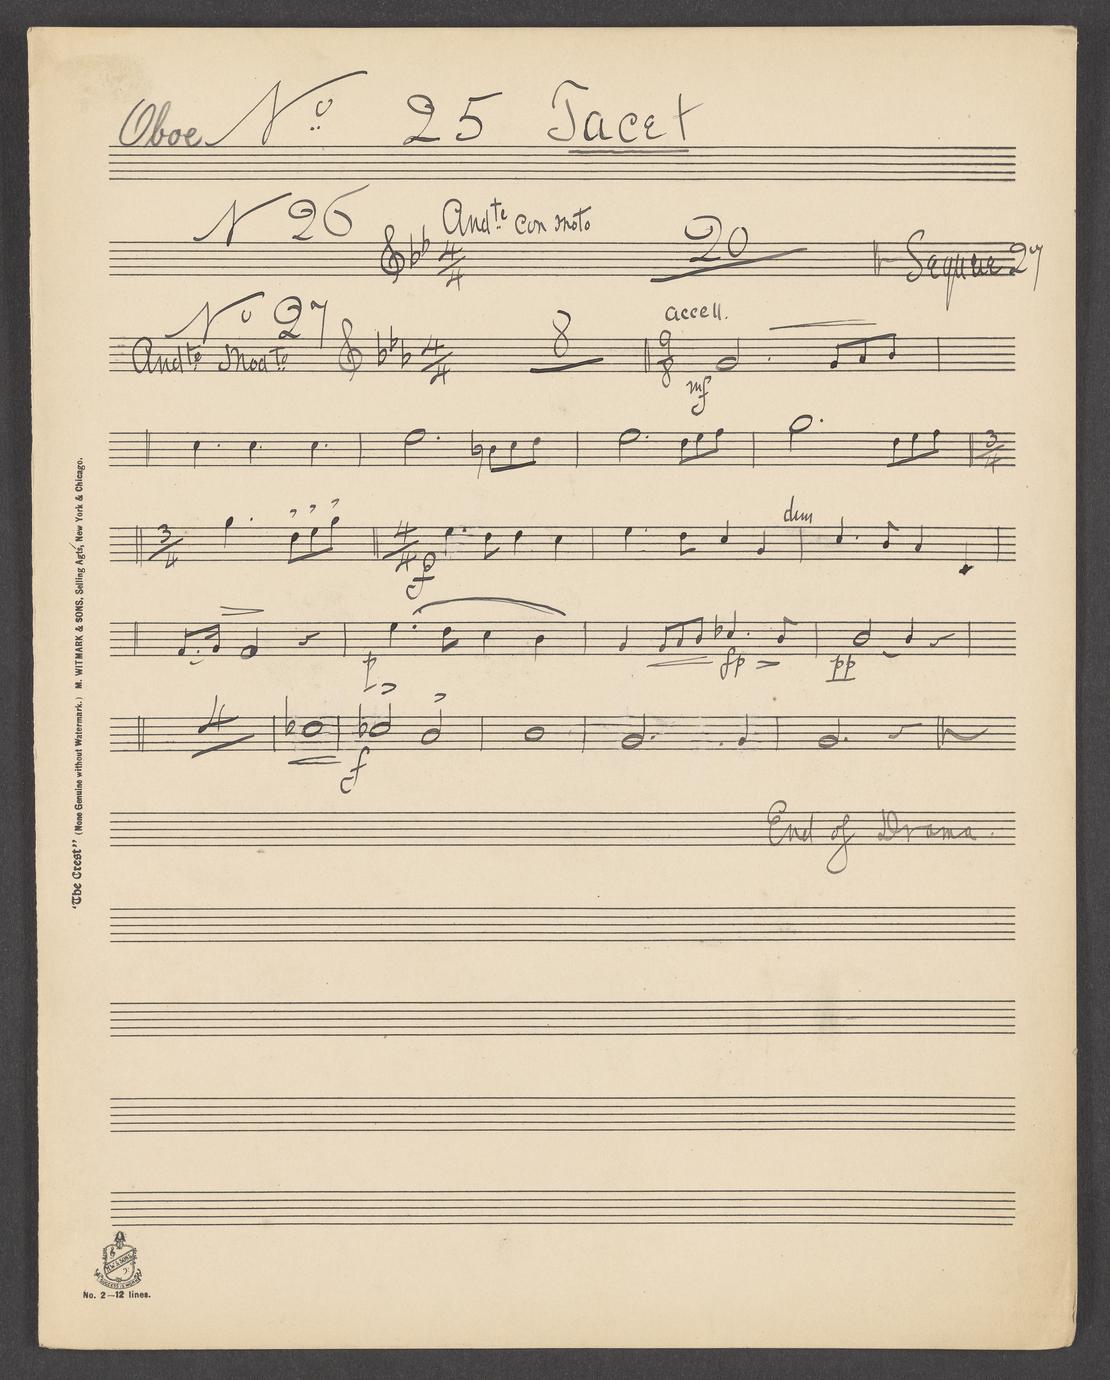 Oboe Nº 25 Tacet
N 26 Andte con moto 4/4 20 Segue 27
Nº 27
Andte Modto 4/4 8 accell. 9/8 mf
3/4
3/4 4/4 f dim
p fp pp
4 f
End of Drama.
"The Crest" (None Genuine without Watermark.) M. WITMARK & SONS, Selling Agts, New York & Chicago.
No. 2—12 lines.